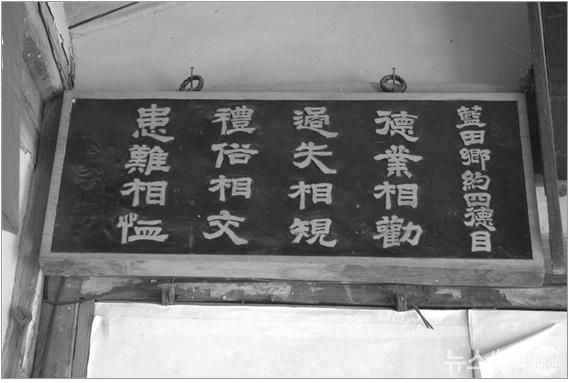 藍田鄉約四德目
德業相勸
過失相規
禮俗相交
患難相恤